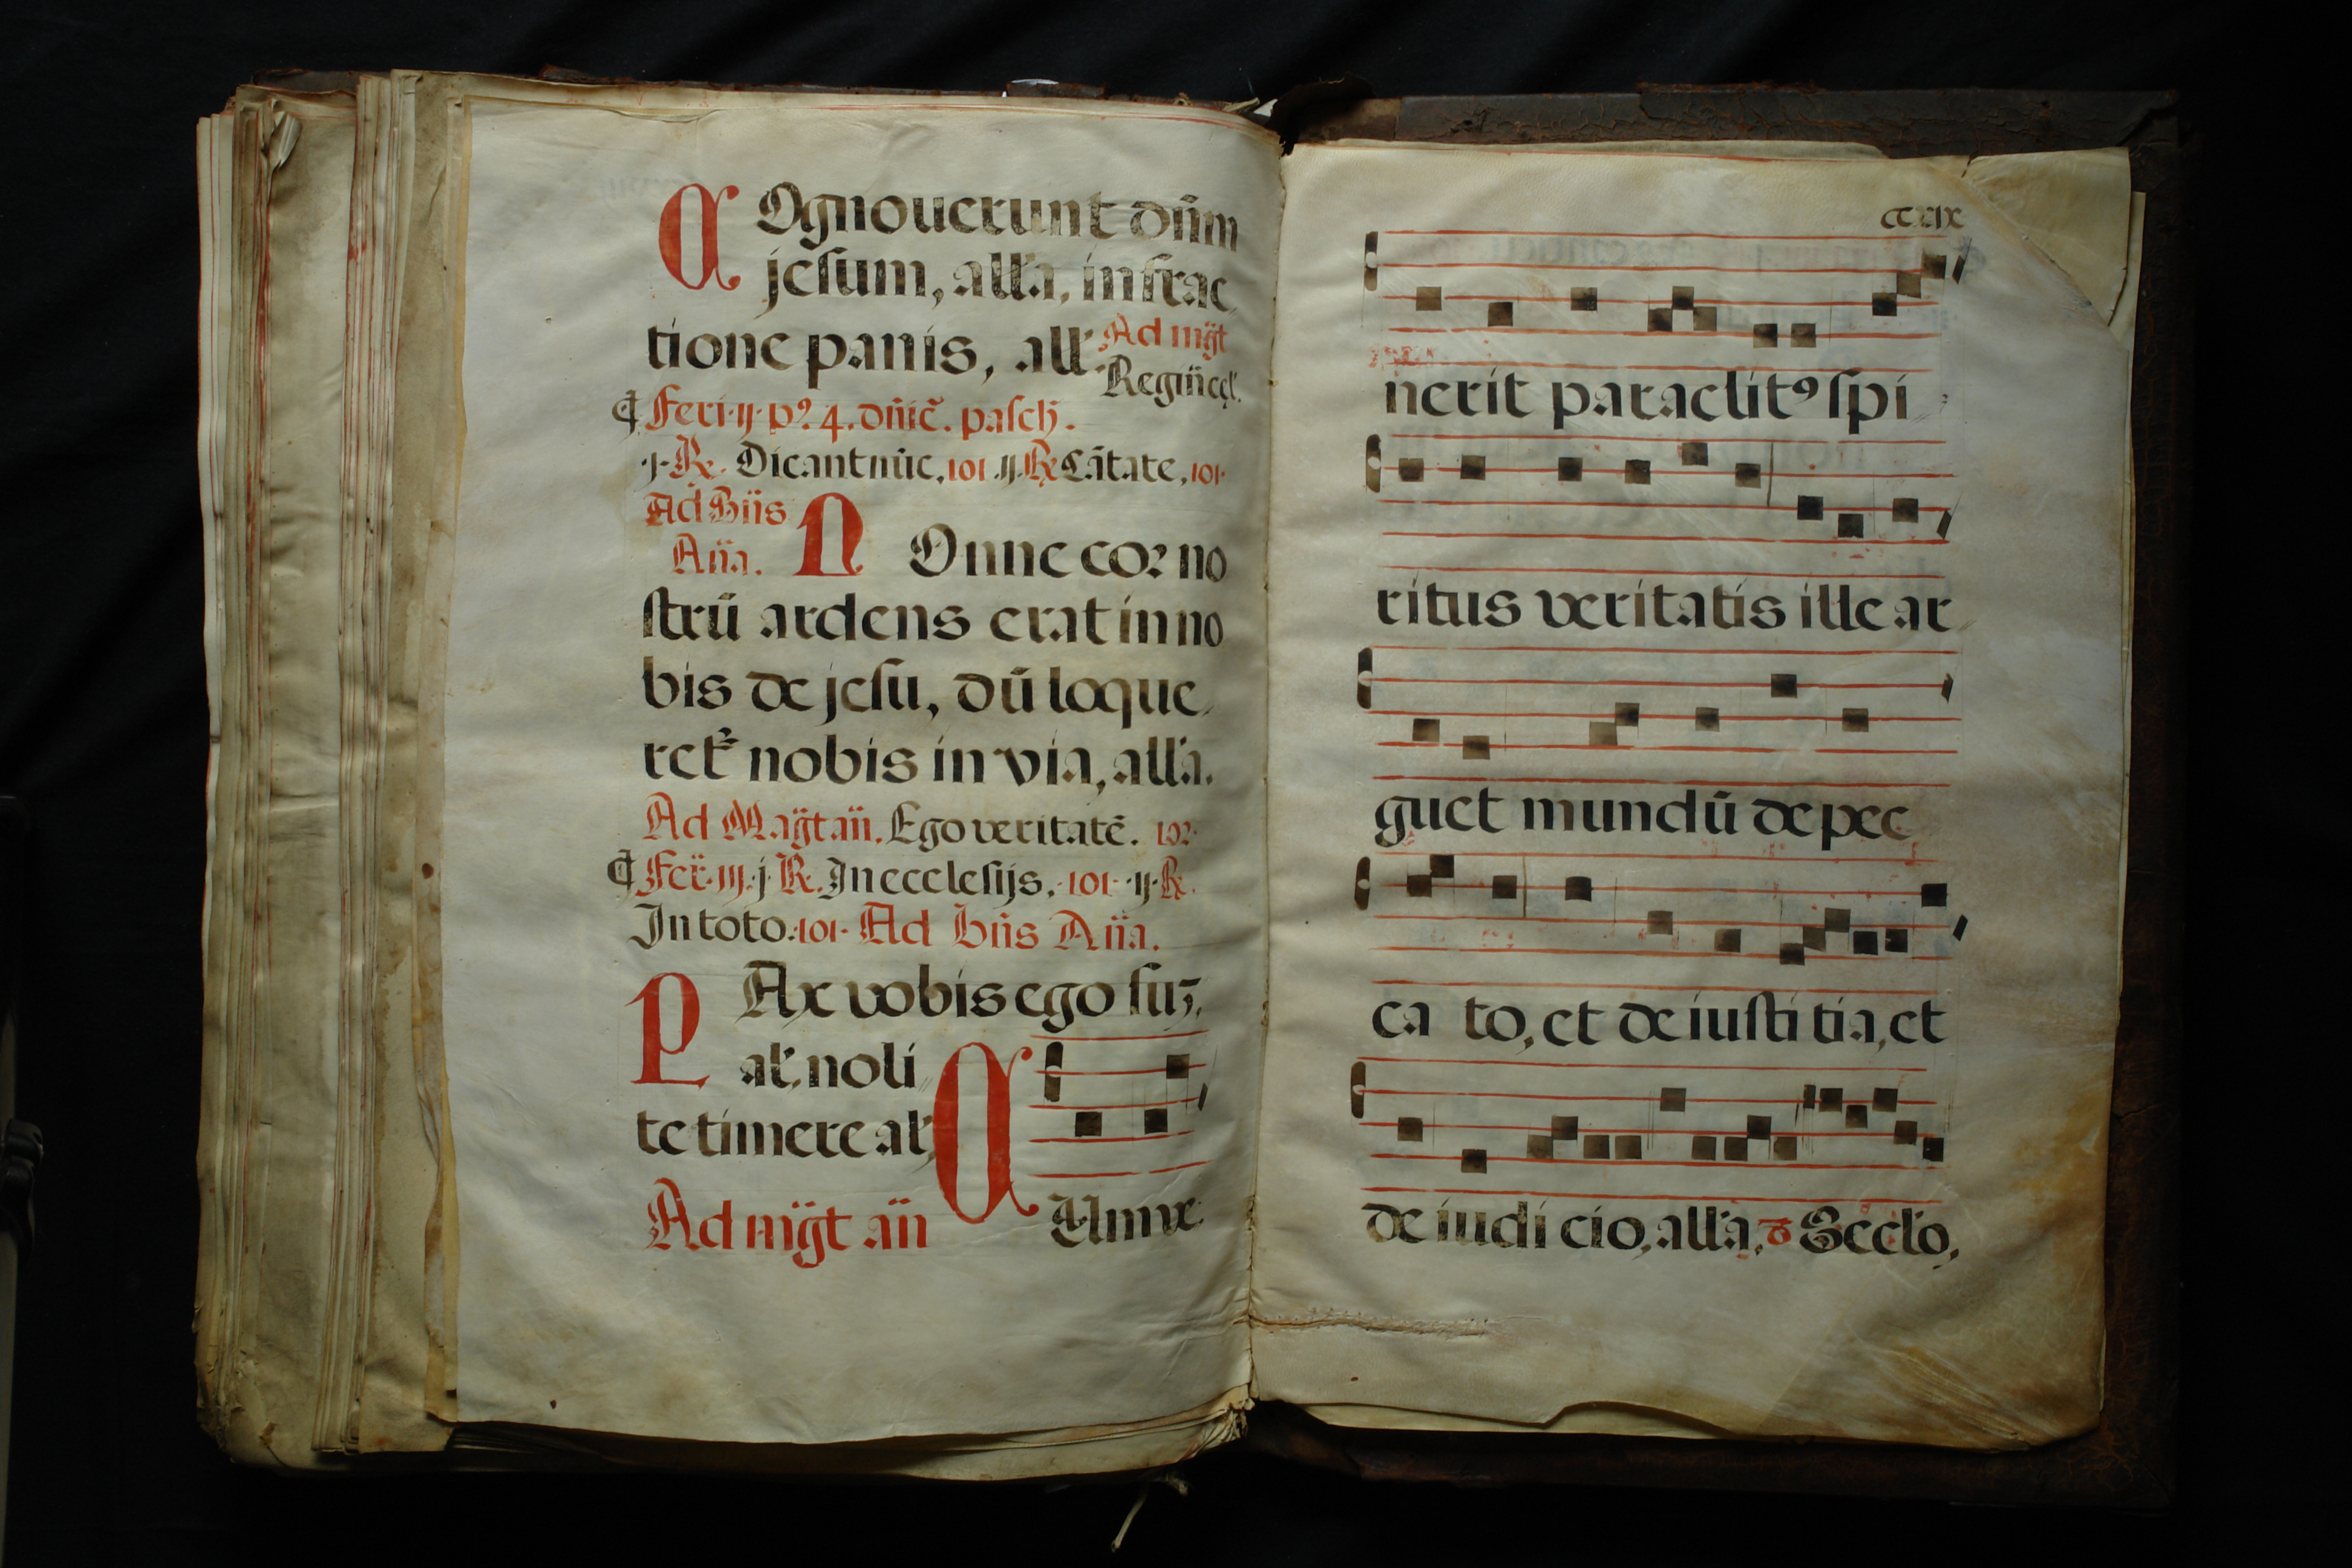 COgnouerunt dn̄m
jesum, all'a, in frac
tione panis, all'. Ad mg̃t
Regin̄ cęl'.
Feri. ij. p9. 4. dn̄ic̄. pasch.
.j. R̷. Dicant nūc, 101 .ij. R̷ Cātate, 101.
Ad Bn̄s
An̄a. NOnne cor no
strū ardens erat in no
bis de jesu, dū loque
ret' nobis in via, all'a.
Ad Mag̃t an̄. Ego veritatē. 102.
Fer̄. iij. j R̷. In ecclesijs, .101. .ij. R̷.
In toto .101. Ad Bn̄s An̄a.
PAx vobis ego suz,
al', noli
te timere al',
Ad mg̃t an̄ CUm ve
ccxix
nerit paraclit9 spi
ritus veritatis ille ar
guet mundū de pec
ca to, et de iusti tia, et
de iudi cio, all'a, Secl'o,